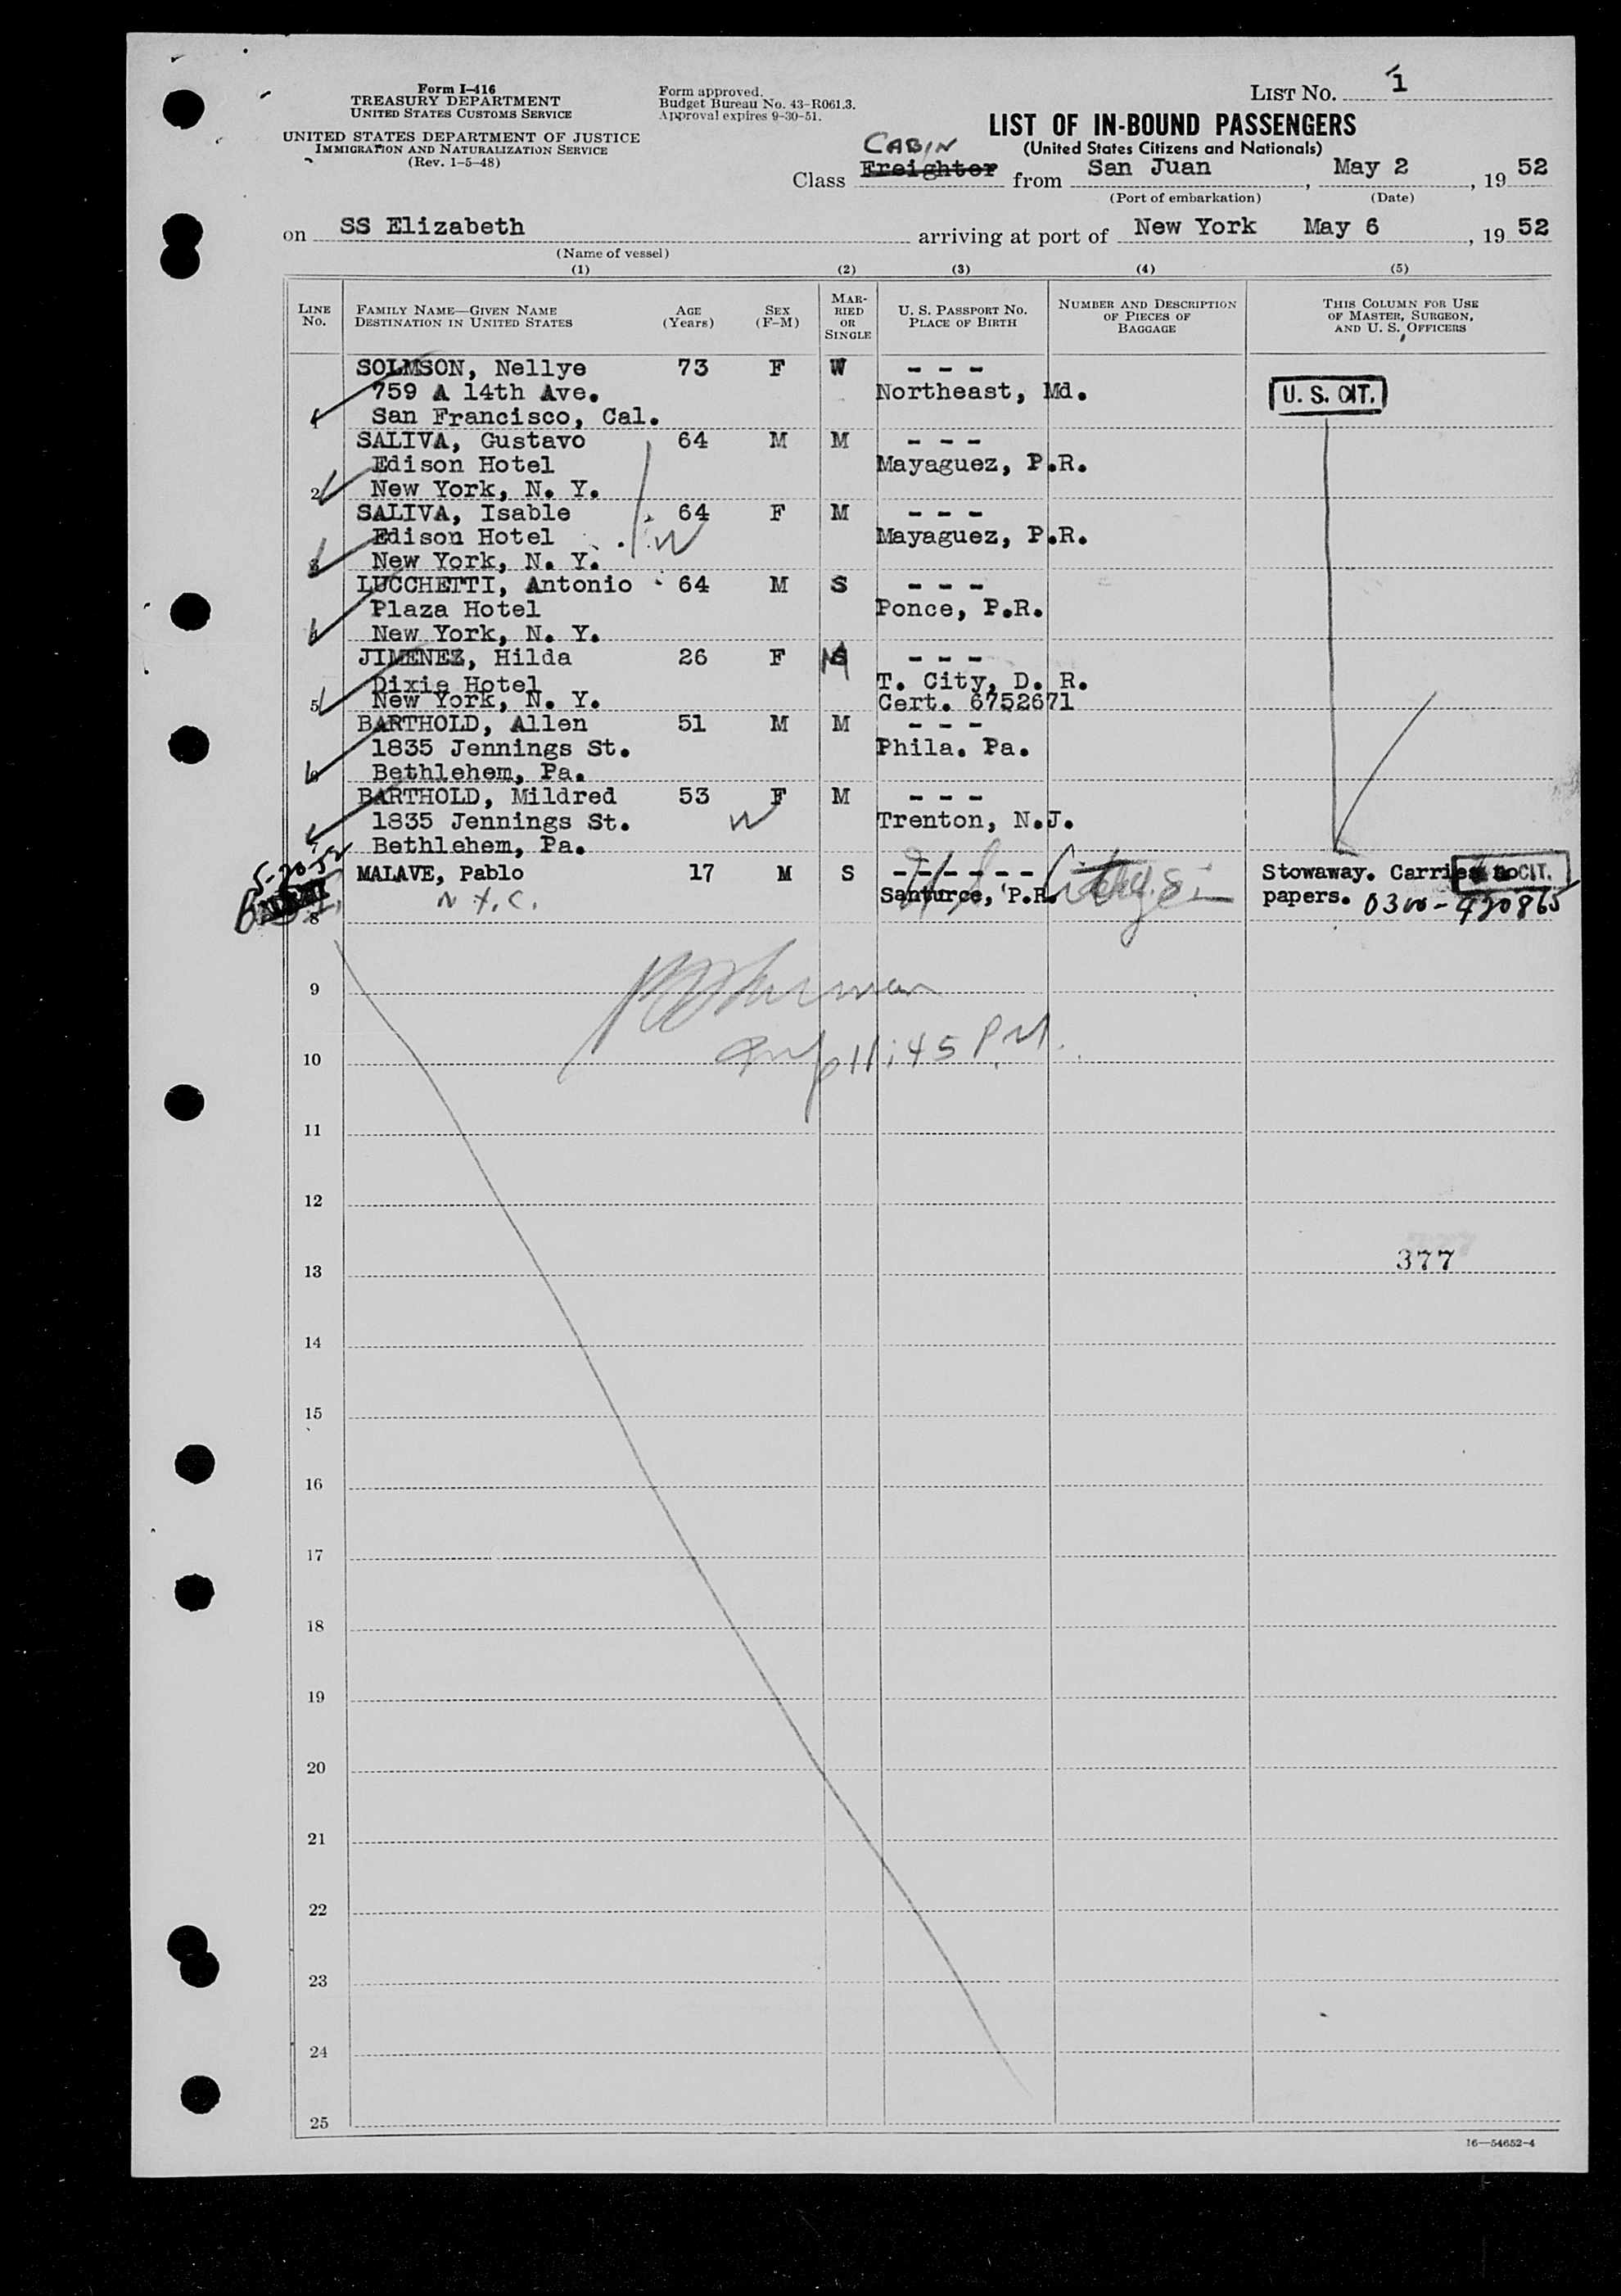 Form I-416
TREASURY DEPARTMENT
UNITED STATES CUSTOMS SERVICE
UNITED STATES DEPARTMENT OF JUSTICE
IMMIGRATION AND NATURALIZATION SERVICE
(Rev. 1-5-48)
Form approved.
Budget Bureau No. 43-R061.3.
Approval expires 9-30-51.
LIST NO. 1
LIST OF IN-BOUND PASSENGERS
(United States Citizens and Nationals)
CABIN
Class Freighter from San Juan, May 2, 19 52
(Port of embarkation) (Date)
on SS Elizabeth arriving at port of New York May 6, 19 52
(Name of vessel)
(1) (2) (3) (4) (5)
LINE NO.
FAMILY NAME—GIVEN NAME
DESTINATION IN UNITED STATES
AGE (Years)
SEX (F-M)
MARRIED OR SINGLE
U. S. PASSPORT NO.
PLACE OF BIRTH
NUMBER AND DESCRIPTION OF PIECES OF BAGGAGE
THIS COLUMN FOR USE OF MASTER, SURGEON, AND U. S. OFFICERS
SOLMSON, Nellye 73 F W - - -
759 A 14th Ave. Northeast, Md. U. S. CIT.
1 San Francisco, Cal.
SALIVA, Gustavo 64 M M - - -
Edison Hotel Mayaguez, P.R.
2 New York, N. Y.
SALIVA, Isable 64 F M - - -
Edison Hotel W Mayaguez, P.R.
3 New York, N. Y.
LUCCHETTI, Antonio 64 M S - - -
Plaza Hotel Ponce, P.R.
4 New York, N. Y.
JIMENEZ, Hilda 26 F M - - -
Dixie Hotel T. City, D. R.
5 New York, N. Y. Cert. 6752671
BARTHOLD, Allen 51 M M - - -
1835 Jennings St. Phila. Pa.
6 Bethlehem, Pa.
BARTHOLD, Mildred 53 F M - - -
1835 Jennings St. W Trenton, N.J.
7 Bethlehem, Pa.
5-20-52
MALAVE, Pablo 17 M S - - - - - - Stowaway. Carries no CIT.
N.Y.C. Santurce, P.R. papers. 0300-420865
8
9
10 11:45 PM.
11
12
377
13
14
15
16
17
18
19
20
21
22
23
24
25
16—54652-4